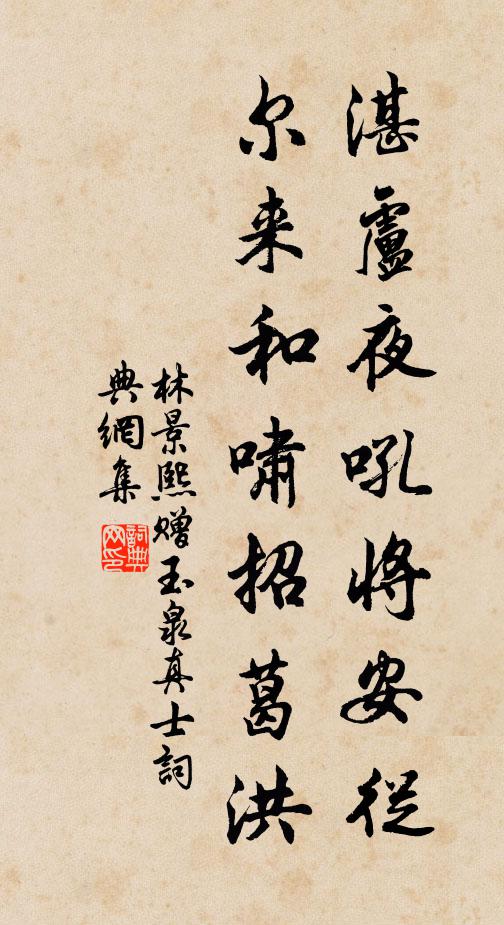 湛盧夜吼將安從
尔来和嘯招葛洪
林景熙赠玉泉真士詞
典網集
詞典
网印